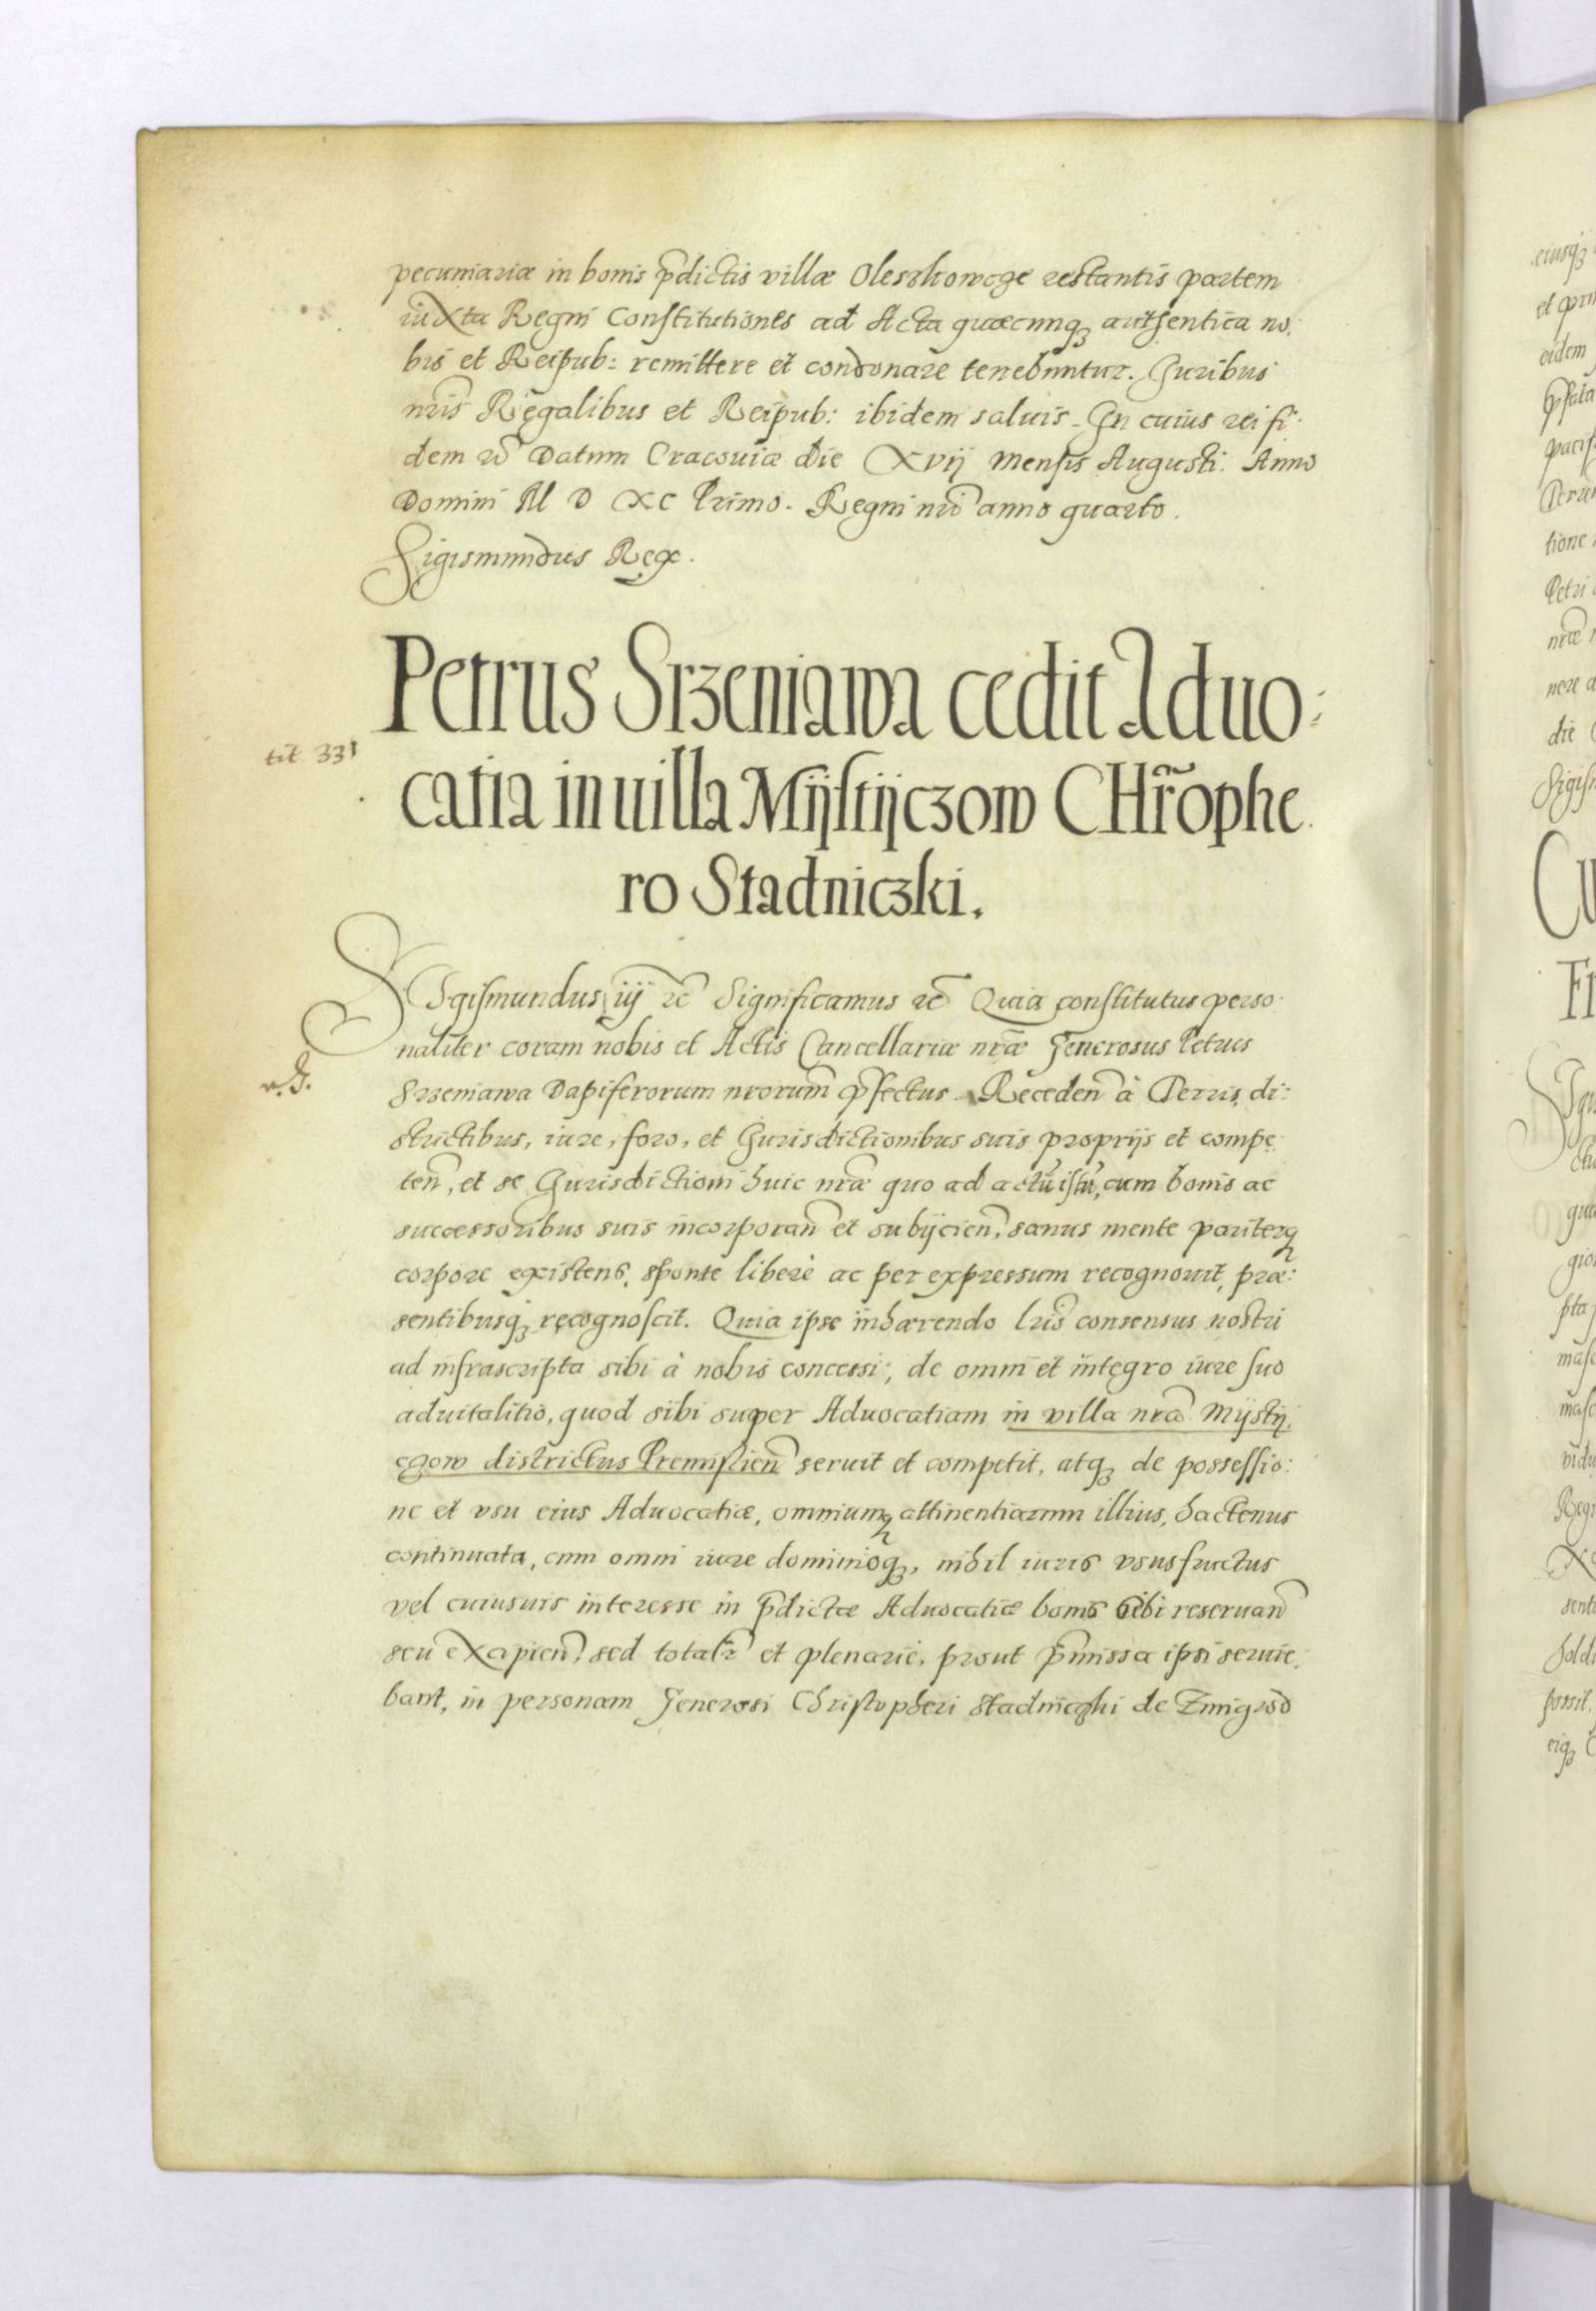 pecuniariæ in bonis p̃dictis villæ Oleszkowcze restantis partem
iuXta Regni Constitutiones ad Acta quæcunqꝫ authentica no:
bis et Reipub: remittere et condonare tenebuntur. Iuribus
nr̃is Regalibus et Reipub: ibidem saluis. In cuius rei fi:
dem rc̃ Datum Cracouiæ die Xvij Mensis Augusti. Anno
Domini M D XC Primo. Regni nr̃i anno quarto.
Sigismundus Rex.
Petrus Srzeniawa cedit Aduo:
tit 331
catia in uilla Mijstijczow CHr̃ophe
ro Stadniczki.
Sigismundus iij rc̃ Significamus rc̃ Quia constitutus perso:
naliter coram nobis et Actis Cancellariæ nr̃æ Generosus Petrus
Srzeniawa Dapiferorum nrorum̃ p̃fectus. Receden̄ à Terris, di:
strictibus, iure, foro, et Jurisdictionibus suis proprijs et compe
ten̄, et se Jurisdictioni huic nr̃æ quo ad actū istū, cum bonis ac
successoribus suis incorporan̄ et subijcien̄, sanus mente pariterqꝫ
corpore existens, sponte liberè ac per expressum recognouit, præ:
sentibusqꝫ recognoscit. Quia ipse inhærendo lr̃is consensus nostri
ad infrascripta sibi à nobis concessi, de omni et integro iure suo
aduitalitio, quod sibi super Aduocatiam in villa nr̃a Mijstij
czow districtus Premislien̄ seruit et competit, atqꝫ de possessio:
ne et vsu eius Aduocatiæ, omniumqꝫ attinentiarum illius, hactenus
continuata, cum omni iure dominioqꝫ, nihil iuris vsusfructus
vel cuiusuis interesse in p̃dictæ Aduocatiæ bonis sibi reseruan̄
seu eXcipien̄, sed totalr̃ et plenariè, prout p̃missa ipsi seruie:
bant, in personam Generosi Christopheri Stadniczki de Zmigrod